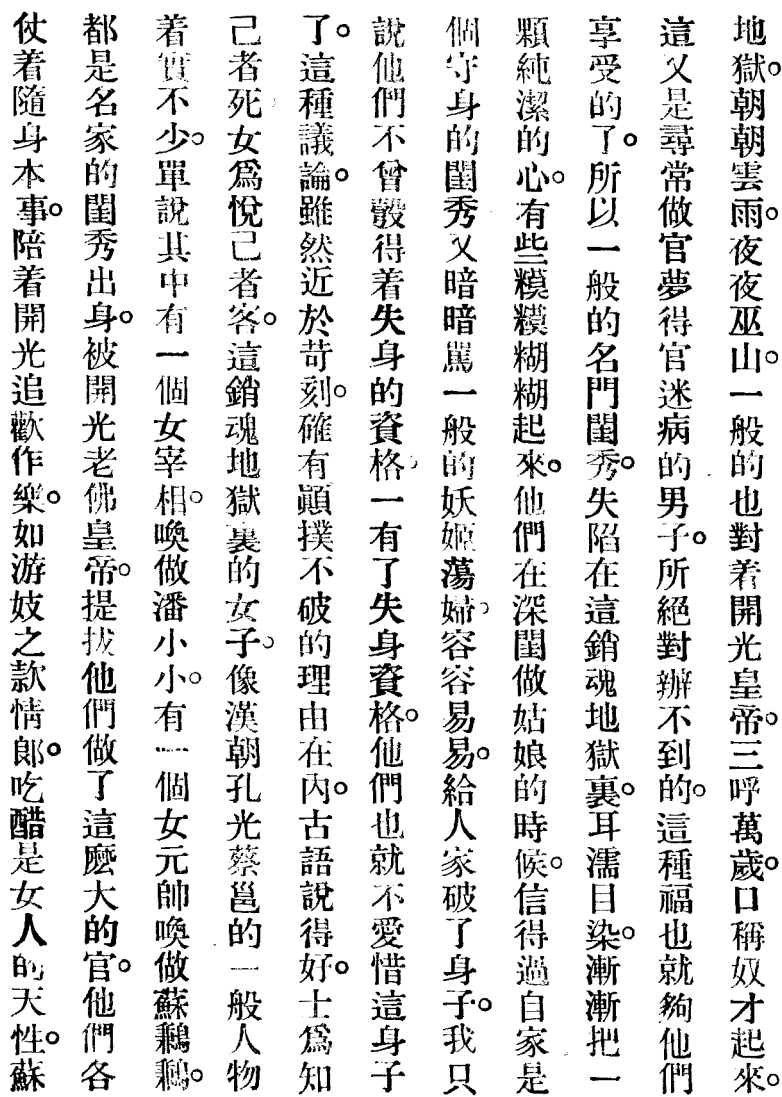 地獄。朝朝雲雨。夜夜巫山。一般的也對着開光皇帝。三呼萬歲。口稱奴才起來。
這又是尋常做官夢得官迷病的男子。所絕對辦不到的。這種福也就夠他們
享受的了。所以一般的名門閨秀。失陷在這銷魂地獄裏。耳濡目染。漸漸把一
顆純潔的心。有些糢糢糊糊起來。他們在深閨做姑娘的時候。信得過自家是
個守身的閨秀又暗暗罵一般的妖姬蕩婦。容容易易。給人家破了身子。我只
說他們不曾彀得着失身的資格。一有了失身資格。他們也就不愛惜這身子
了。這種議論。雖然近於苛刻。確有顚撲不破的理由在內。古語說得好。士爲知
己者死女爲悅己者容。這銷魂地獄裏的女子。像漢朝孔光蔡邕的一般人物
着實不少。單說其中有一個女宰相。喚做潘小小。有一個女元帥喚做蘇鶼鶼。
都是名家的閨秀出身。被開光老佛皇帝。提拔他們做了這麽大的官。他們各
仗着隨身本事。陪着開光追歡作樂。如游妓之款情郎。吃醋是女人的天性。蘇